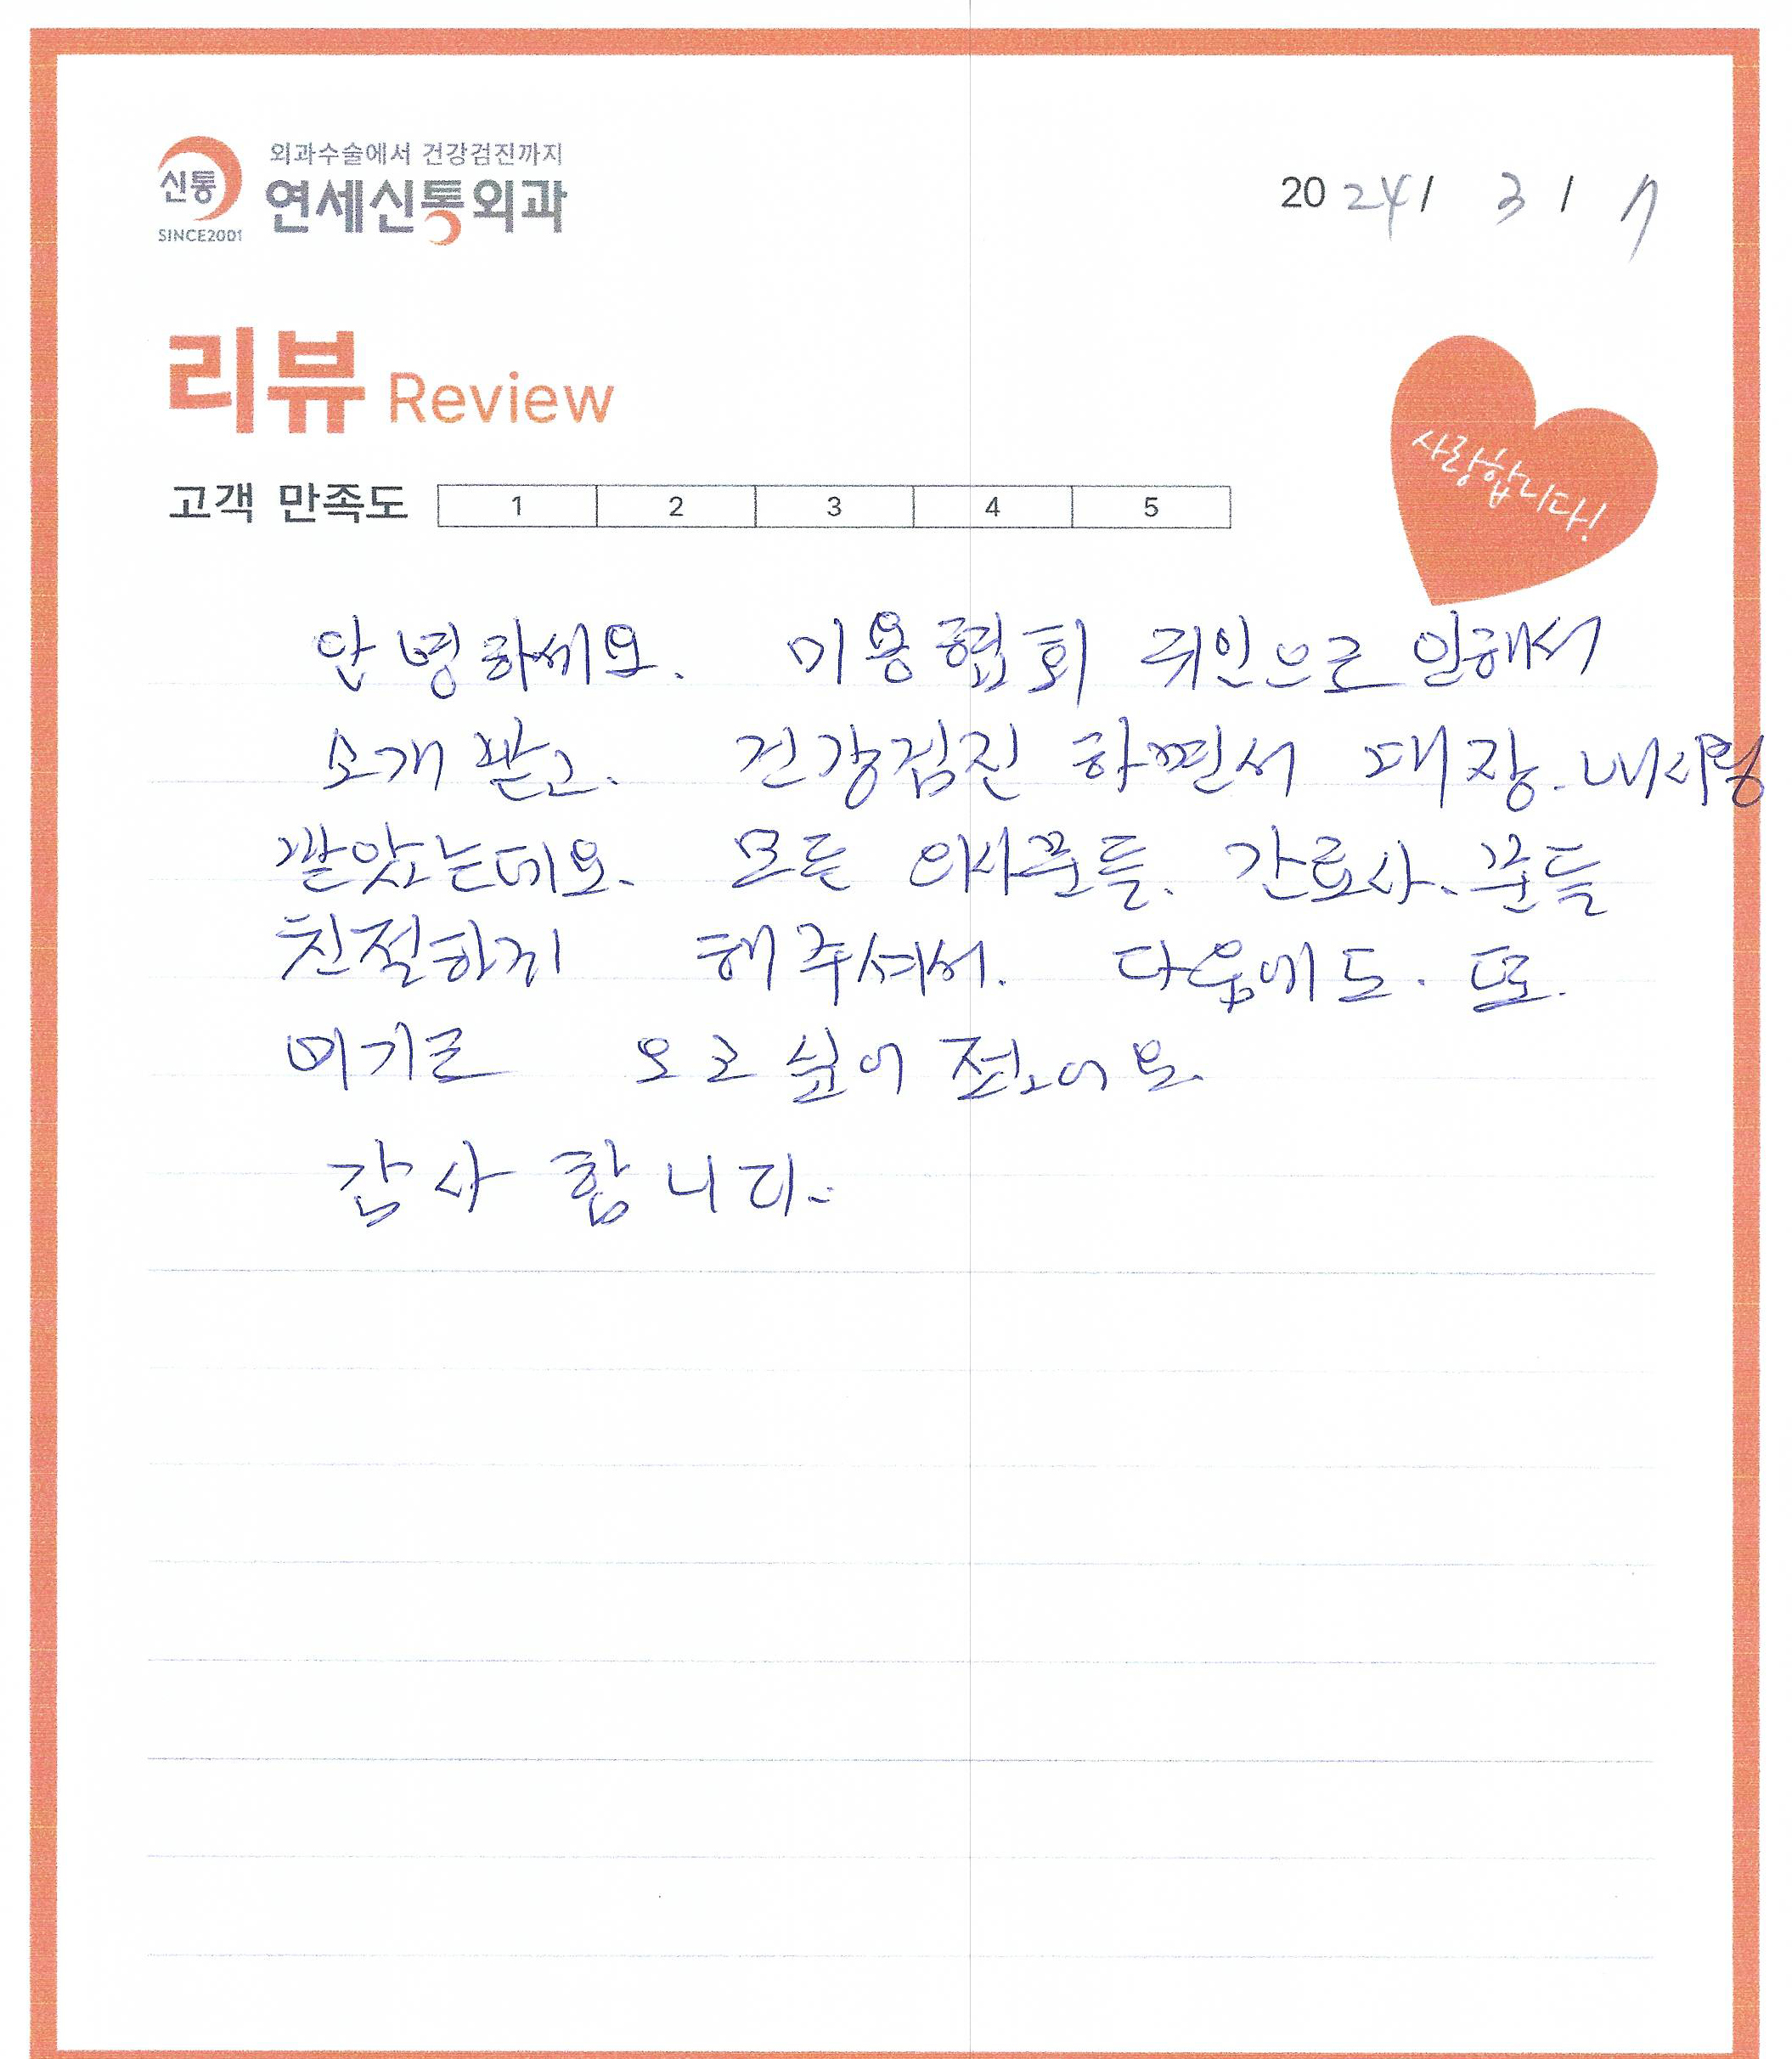 외과수술에서 건강검진까지
신통 연세신통외과
SINCE2001
2024 / 3 / 7
리뷰 Review
사랑합니다!
고객 만족도 1 2 3 4 5
안녕하세요. 미용협회 귀인으로 인해서
소개받고. 건강검진 하면서 대장.내시경
받았는데요. 모든 의사분들. 간호사.분들
친절하게 해주셔서. 다음에도. 또.
여기로 오고싶어졌어요.
감사합니다.